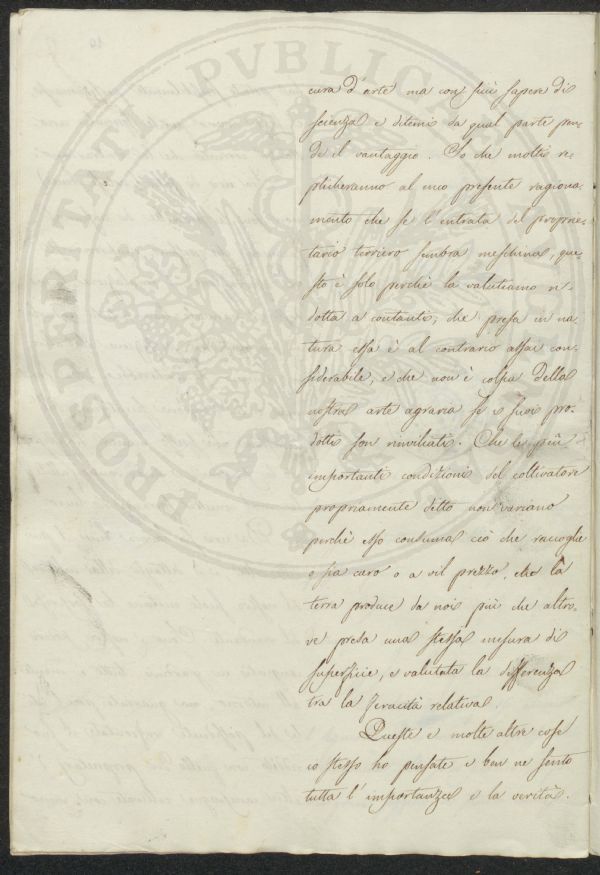 cura d'arte ma con più sapere di
scienza e ditemi da qual parte pen-
de il vantaggio. So che molti re-
plicheranno al mio presente ragiona-
mento che se l'entrata del proprie-
tario terriero sembra meschina, que-
sto è solo perchè la valutiamo ri-
dotta a contanti, che presa in na-
tura essa è al contrario assai con-
siderabile, e che non è colpa della
nostra arte agraria se i suoi pro-
dotti son rinviliati. Che le più
importanti condizioni del coltivatore
propriamente detto non variano
perchè esso consuma ciò che raccoglie
o sia caro o a vil prezzo, che la
terra produce da noi più che altro-
ve presa una stessa misura di
superficie, e valutata la differenza
tra la feracità relativa.
Queste e molte altre cose
io stesso ho pensate e ben ne sento
tutta l'importanza e la verità.
PROSPERITATI PVBLICAE